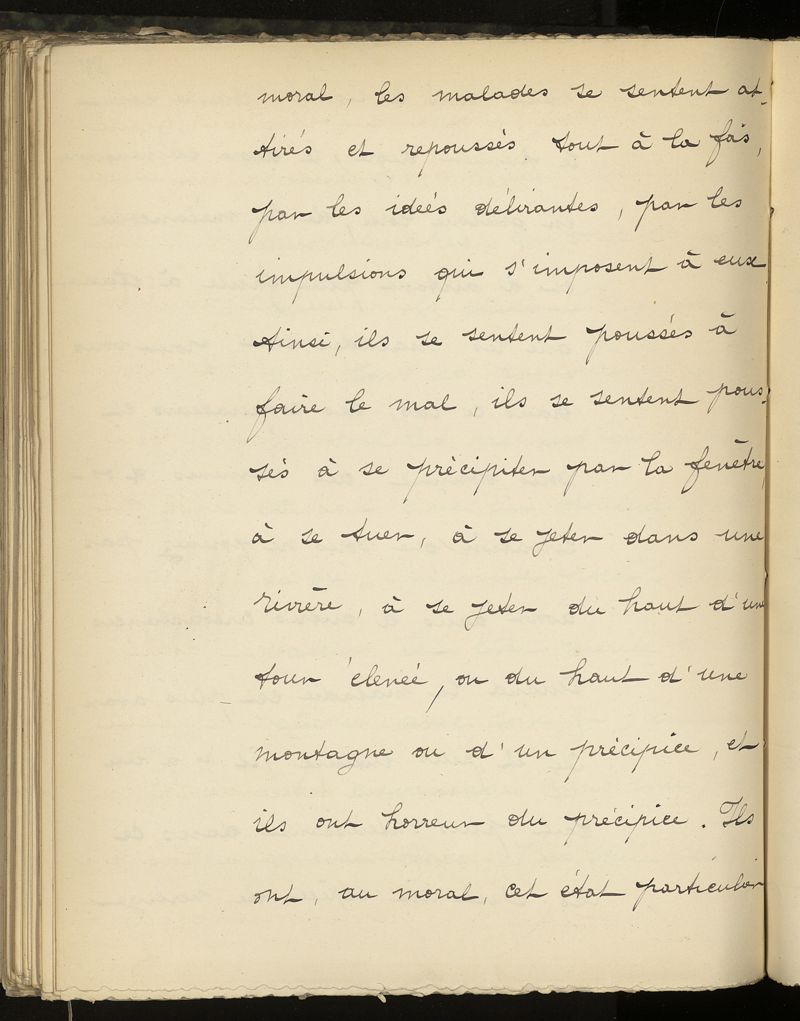 moral, les malades se sentent at-
tirés et repoussés tout à la fois,
par les idées délirantes, par les
impulsions qui s'imposent à eux
Ainsi, ils se sentent poussés à
faire le mal, ils se sentent pous-
sés à se précipiter par la fenêtre,
à se tuer, à se jeter dans une
rivière, à se jeter du haut d'une
tour élevée, ou du haut d'une
montagne ou d'un précipice, et
ils ont horreur du précipice. Ils
ont, au moral, cet état particulier